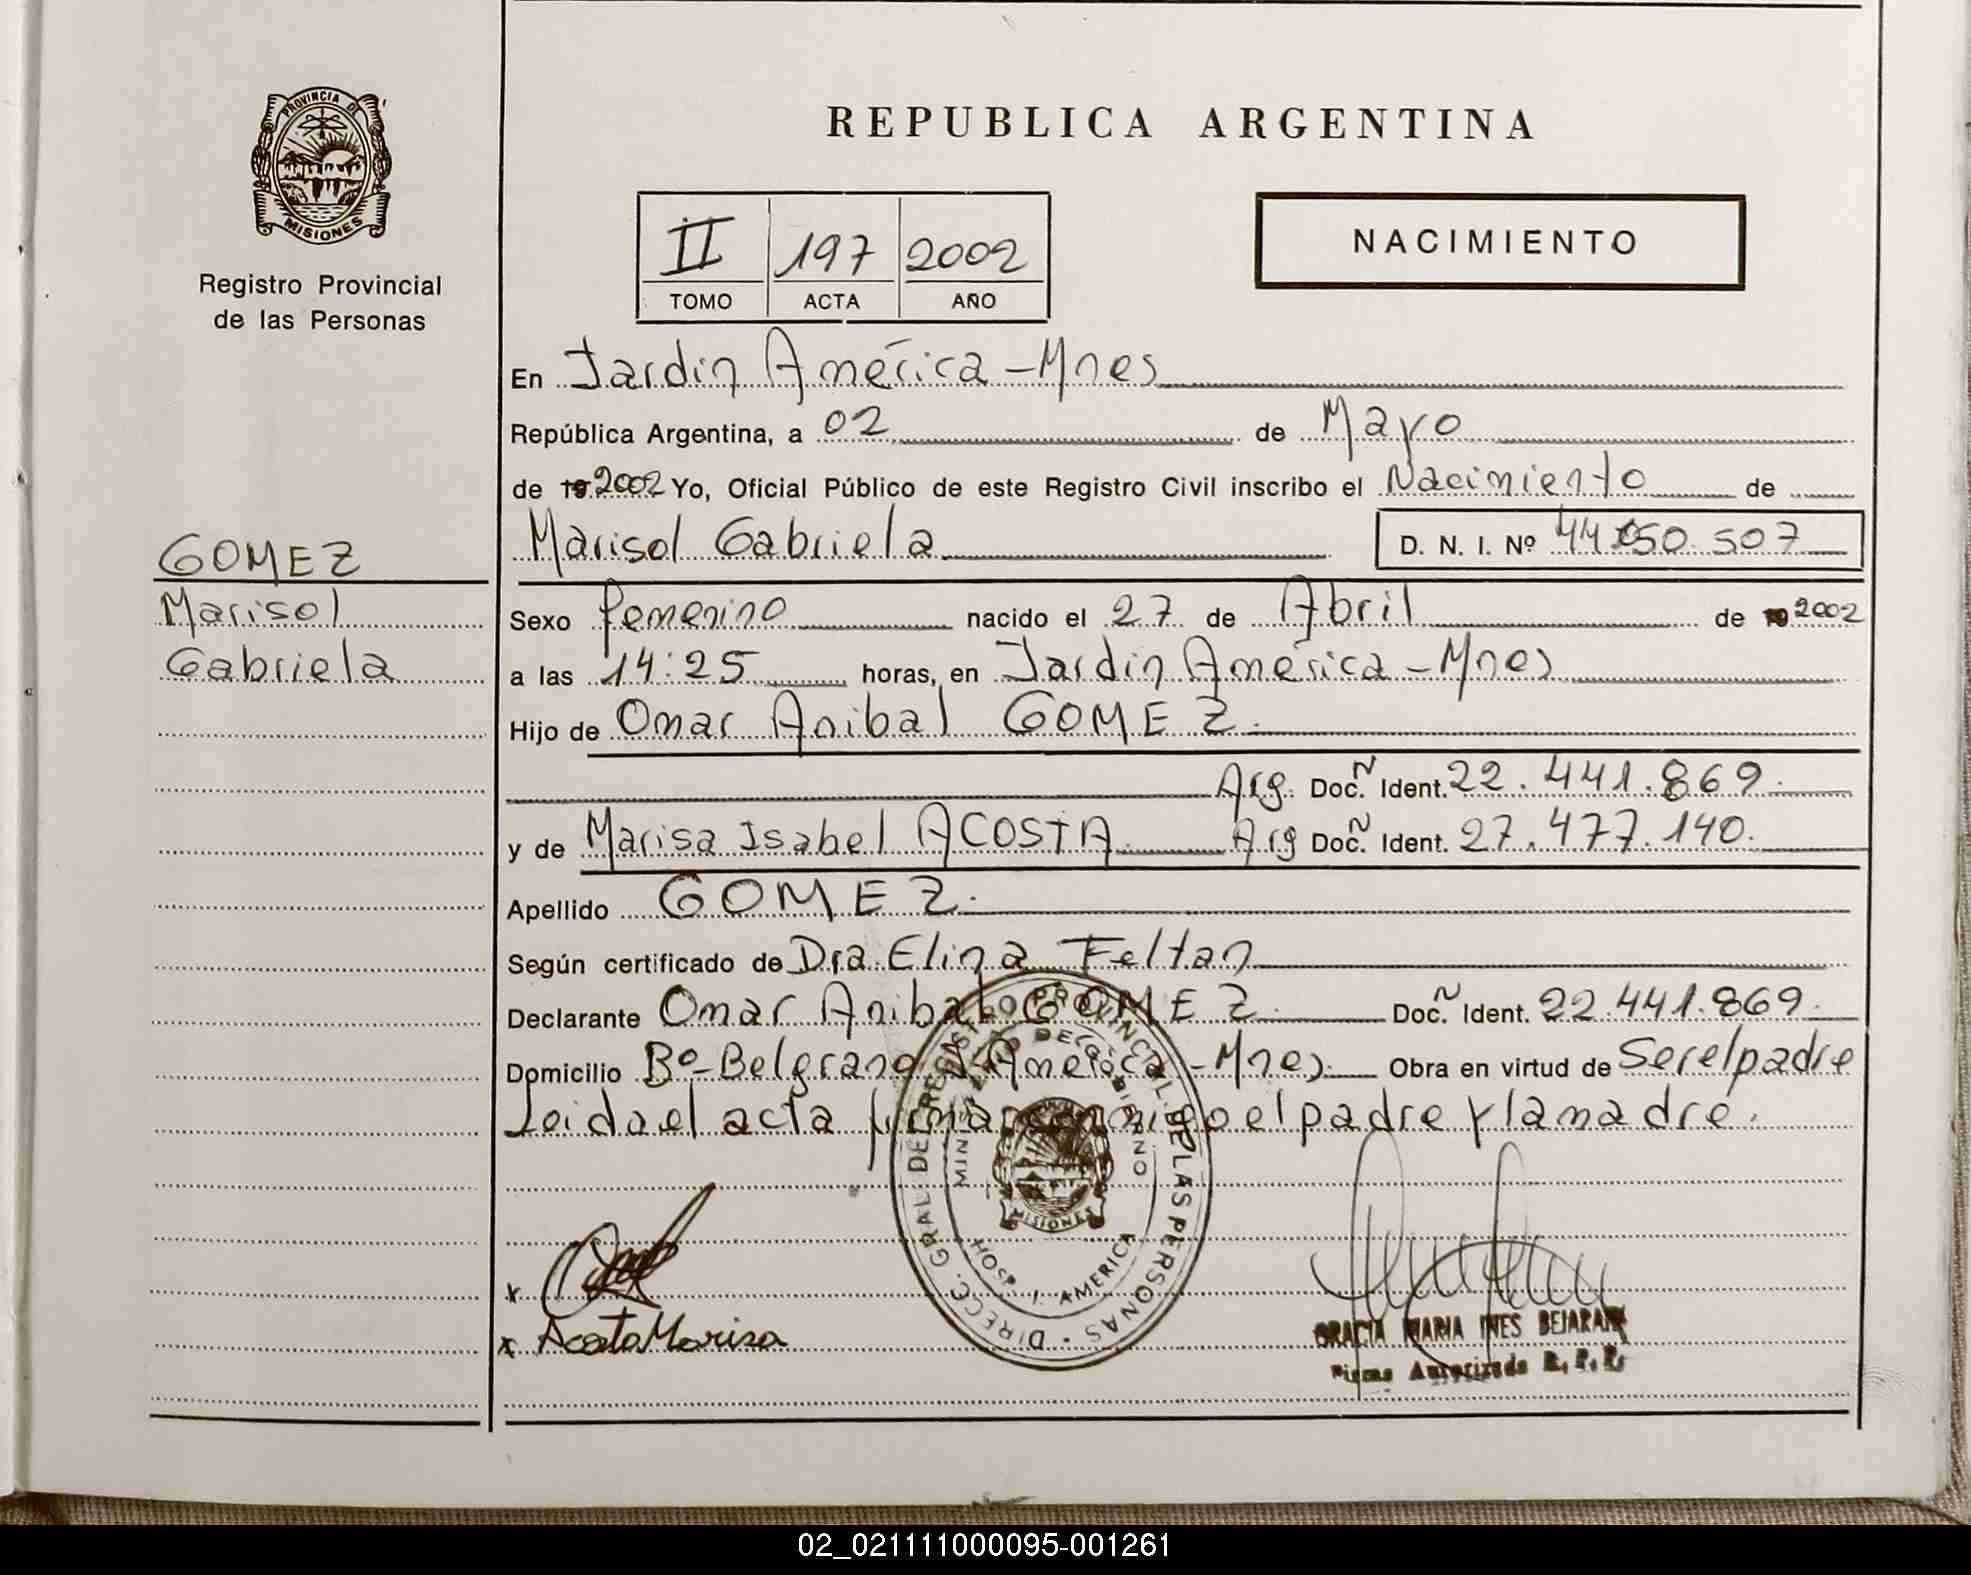 PROVINCIA DE
MISIONES
Registro Provincial
de las Personas
GOMEZ
Marisol
Gabriela
REPUBLICA ARGENTINA
II 197 2002
TOMO ACTA AÑO
NACIMIENTO
En Jardin América - Mnes
República Argentina, a 02 de Mayo
de 19 2002 Yo, Oficial Público de este Registro Civil inscribo el Nacimiento de
Marisol Gabriela D. N. I. Nº 44.050.507
Sexo femenino nacido el 27 de Abril de 19 2002
a las 14:25 horas, en Jardin América - Mnes
Hijo de Omar Anibal GOMEZ.
Arg. Doc. N Ident. 22.441.869.
y de Marisa Isabel ACOSTA Arg Doc. N Ident. 27.477.140.
Apellido GOMEZ.
Según certificado de Dra Elina Feltan
Declarante Omar Anibal GOMEZ. Doc. N Ident. 22.441.869.
Domicilio Bº-Belgrano J. América - Mnes. Obra en virtud de Ser el padre
Leida el acta firman conmigo el padre y la madre.
DIRECC. GRAL. DE REGISTRO PROVINCIAL DE LAS PERSONAS
MINISTERIO DE GOBIERNO
MISIONES
HOSP. J. AMERICA
x
x Acosta Marisa
GRACIA MARIA INES BEJARANO
Firma Autorizada R. P. P.
02_021111000095-001261